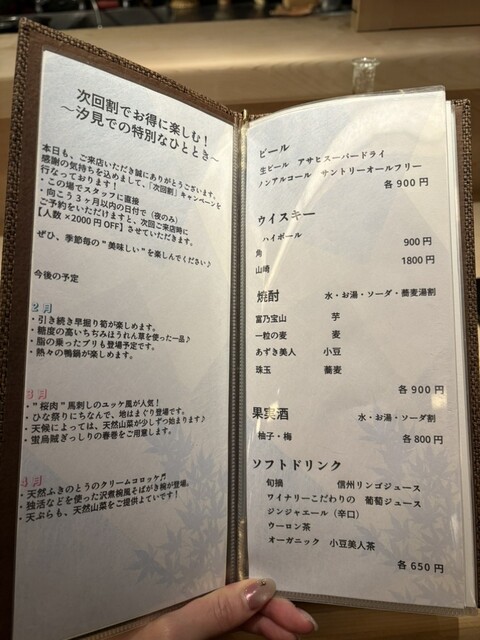 次回割でお得に楽しむ！
～汐見での特別なひととき～
本日も、ご来店いただき誠にありがとうございます。
感謝の気持ちを込めまして、「次回割」キャンペーンを
行なっております！
・この場でスタッフに直接
・向こう３ヶ月以内の日付で（夜のみ）
ご予約をいただけますと、次回ご来店時に
【人数 ×2000円 OFF】させていただきます。
ぜひ、季節毎の"美味しい"を楽しんでください♪
今後の予定
２月
・引き続き早掘り筍が楽しめます。
・糖度の高いちぢみほうれん草を使った一品♪
・脂の乗ったブリも登場予定です。
・熱々の鴨鍋が楽しめます。
３月
・"桜肉"馬刺しのユッケ風が人気！
・ひな祭りにちなんで、地はまぐり登場です。
・天候によっては、天然山菜が少しずつ始まります♪
・蛍烏賊ぎっしりの春巻をご用意します。
４月
・天然ふきのとうのクリームコロッケ♬
・独活などを使った沢煮椀風そばがき椀が登場。
・天ぷらも、天然山菜をご提供よていです！
ビール
生ビール アサヒスーパードライ
ノンアルコール サントリーオールフリー
各 900 円
ウイスキー
ハイボール
角 900 円
山崎 1800 円
焼酎 水・お湯・ソーダ・蕎麦湯割
富乃宝山 芋
一粒の麦 麦
あずき美人 小豆
珠玉 蕎麦
各 900 円
果実酒 水・お湯・ソーダ割
柚子・梅 各 800 円
ソフトドリンク
旬摘 信州リンゴジュース
ワイナリーこだわりの 葡萄ジュース
ジンジャエール（辛口）
ウーロン茶
オーガニック 小豆美人茶
各 650 円